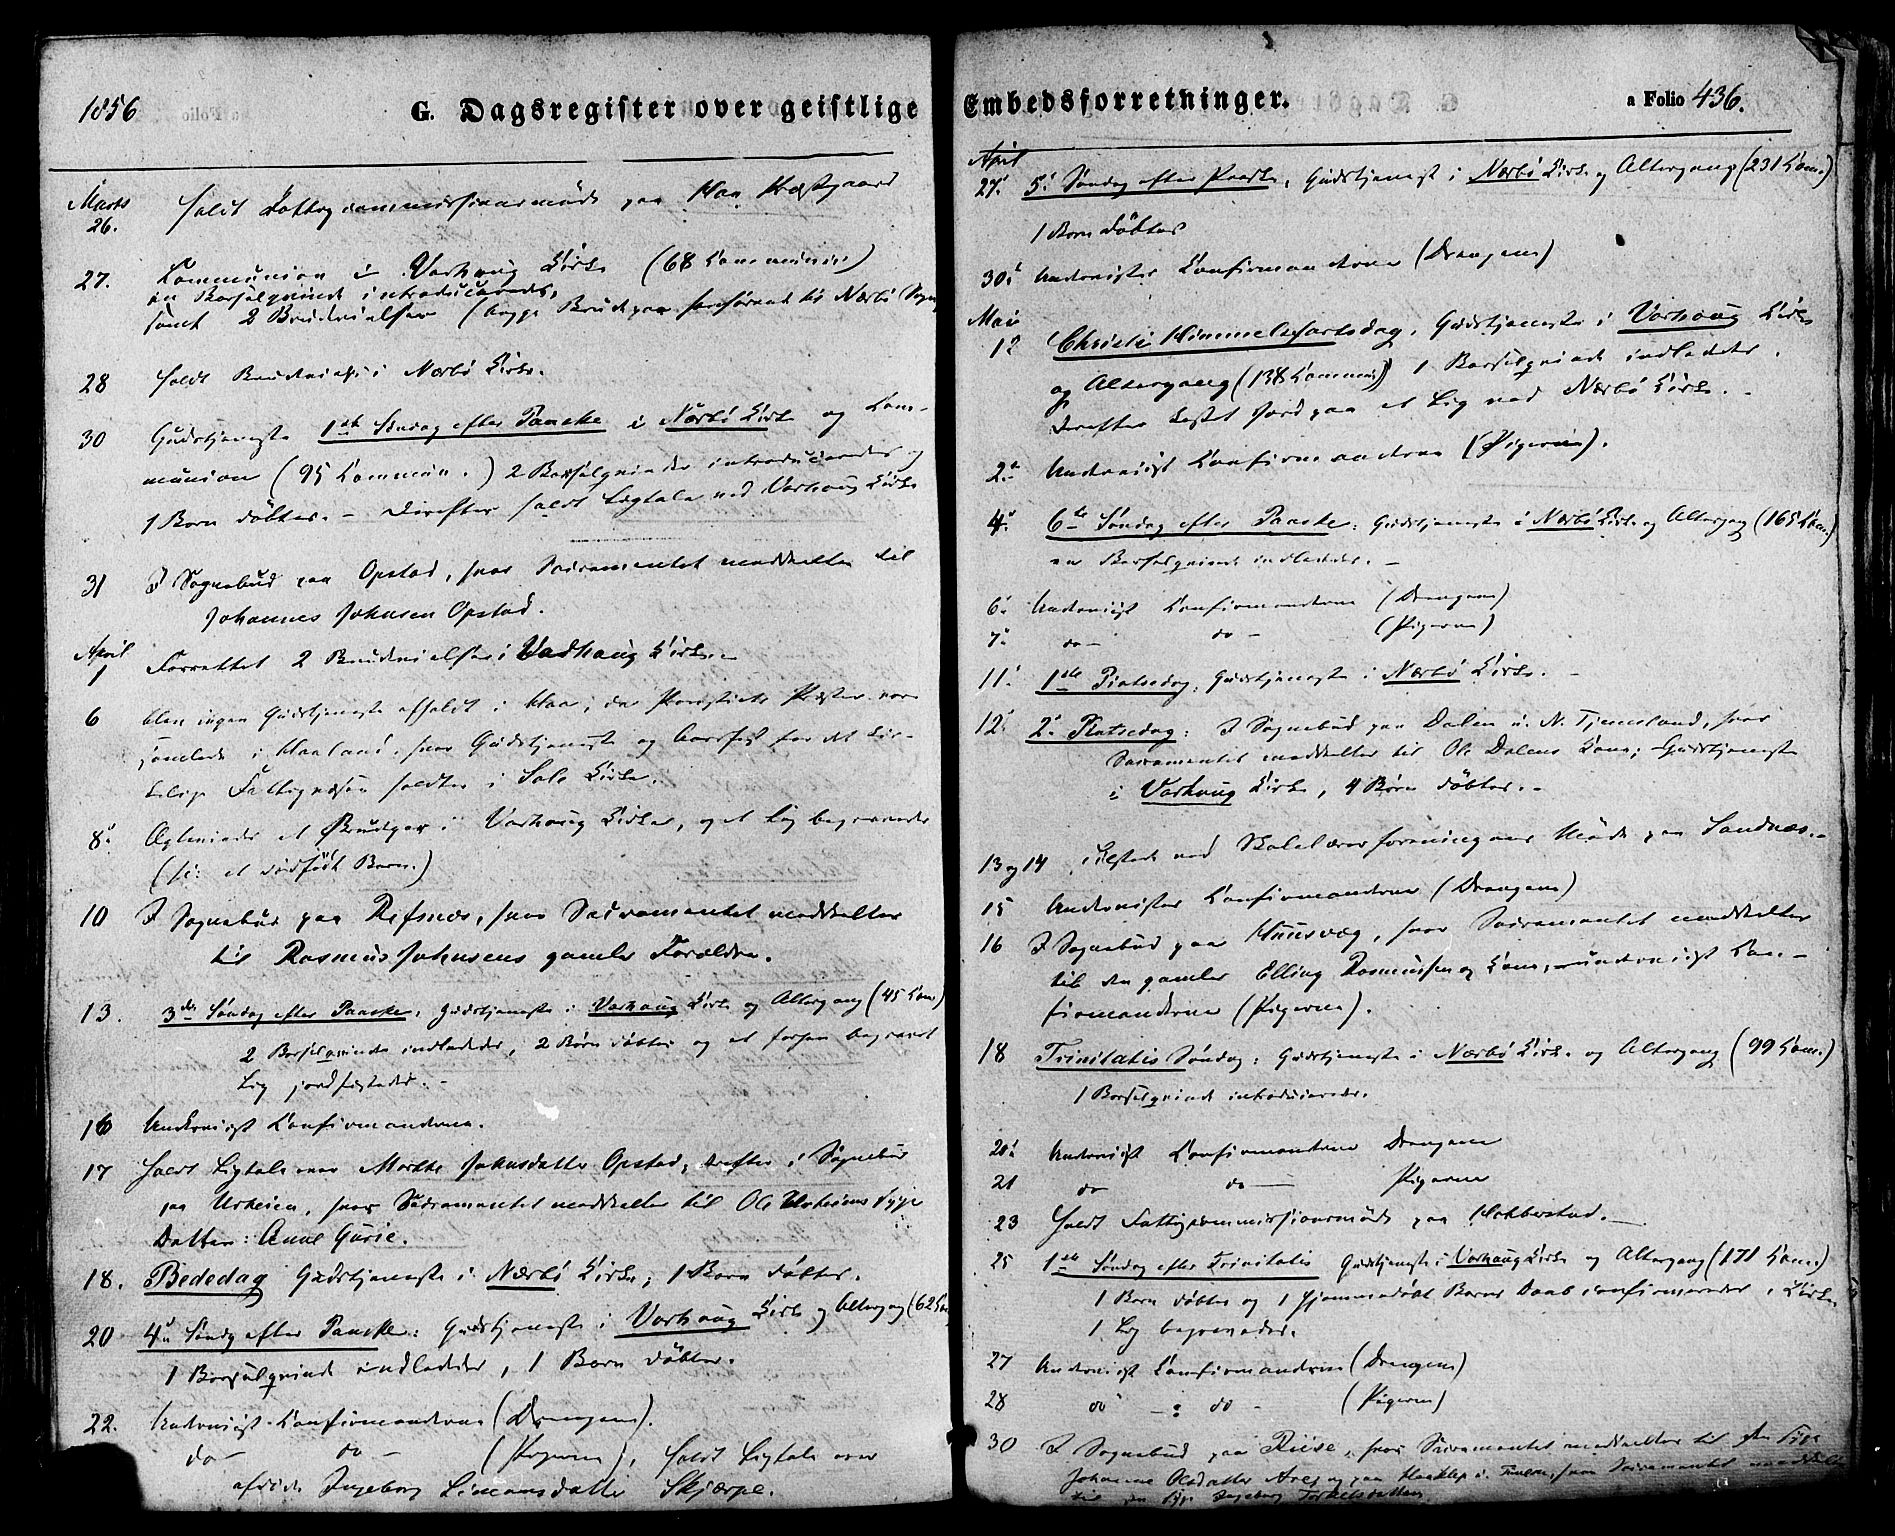 1856
G. Dagsregister over geistlige
Marts
26. holdt Fattigcommissionsmöde paa Haa Præstgaard
27. Communion i Varhoug Kirke (68
en Barselqvinde introduceredes,
samt 2 Brudevielser (begge Brudepar henhörende til Nærbö Sogn
28 holdt Brudevielse i Nærbö Kirke.
30 Gudstjeneste 1ste Søndag efter Paaske i Nærbö Kirke og Com-
munion (95 Commun.) 2 Barselqvinder introduceredes og
1 Barn döbtes. – Derefter holdt Ligtale ved Varhoug Kirke
31 I Sognebud paa Opstad, hvor Sacramentet meddeltes til
Johannes Johnsen Opstad.
April
1 Forrettet 2 Brudevielser i Varhoug Kirke. –
6 Blev ingen Gudstjeneste afholdt i Haa, da Provstiets Præster vare
samlede i Haaland, hvor Gudstjeneste og for det kir-
kelige Fattigvæsen holdtes i Sole Kirke.
8. Ægteviede et Brudepar i Varhoug Kirke, og et Lig begravedes
(: et dödfödt Barn.)
10 I Sognebud paa Refsnes, hvor Sacramentet meddeltes
til Rasmus Johnsens gamle Forældre.
13. 3die Søndag efter Paaske, Gudstjeneste i Varhoug Kirke og Altergang (45 Com.)
2 Barselqvinder indlededes, 2 Börn döbtes og et forhen begravet
Lig jordfæstedes. –
16 Underviist Confirmanderne.
17 Holdt Ligtale over Marthe Johnsdatter Opstad, derefter i Sognebud
paa Urheien, hvor Sacramentet meddeltes til Ole Urheiens syge
Datter: Anne Gurie.
18. Bededag Gudstjeneste i Nærbö Kirke; 1 Barn döbtes.
20 4de Søndg efter Paaske: Gudstjeneste i Varhoug Kirke og Altergang (62 Com
1 Barselqvinde indlededes, 1 Barn döbtes.
22. Underviist Confirmanderne (Drengene).
do – do – (Pigerne), holdt Ligtale over
afdöde Ingeborg Simonsdatter Skjærpe.
Embedsforretninger.
a Folio 436.
April
27. 5. Søndag efter Paaske, Gudstjeneste i Nærbö Kirke og Altergang (231 Com.)
1 Barn döbtes
30. Underviister Confirmanderne (Drengene)
Mai
1 Christi Himmelfartsdag, Gudstjeneste i Varhoug Kirke
og Altergang (138 Commun.) 1 Barselqvinde indlededes,
derefter kastet Jord paa et Lig ved Nærbö Kirke. –
2. Underviist Confirmanderne (Pigerne).
4. 6te Søndag efter Paaske: Gudstjeneste i Nærbö Kirke og Altergang (165 Com.)
en Barselqvinde indlededes. –
6. Underviist Confirmanderne (Drengene)
7. do – do – (Pigerne)
11. 1ste Pintsedag, Gudstjeneste i Nærbö Kirke. –
12. 2. Pintsedag: I Sognebud paa Dalen u. N. Tjemsland, hvor
Sacramentet meddeltes til Ole Dalens Kone; Gudstjeneste
i Varhoug Kirke, 4 Börn döbtes. –
13 og 14 tilstede ved Skolelærerforeningens Möde paa Sandnæs. –
15 Underviister Confirmanderne (Drengene)
16 I Sognebud paa Huusvæg, hvor Sacramentet meddeltes
til den gamle Elling Rasmussen og Kone, – underviist Con-
firmanderne (Pigerne).
18 Trinitatis Søndag: Gudstjeneste i Nærbö Kirke og Altergang (99 Com.)
1 Barselqvinde introduceredes.
20. Underviist Confirmanderne Drengene
21 do do – Pigerne
23 Holdt Fattigcommissionsmöde paa Hobberstad. –
25 1ste Søndag efter Trinitatis Gudstjeneste i Varhoug Kirke og Altergang (171 Com.)
1 Barn döbtes og 1 hjemmedöbt Barns Daab confirmeredes i Kirken
1 Lig begravedes.
27 Underviist Confirmanderne (Drengene)
28 do – : do – (Pigerne)
30 I Sognebud paa Riise, hvor Sacramentet meddeltes til den syge
Johanne Olsdatter og paa hvor Sacramentet meddeltes
til den syge Ingeborg Torkelsdatter.